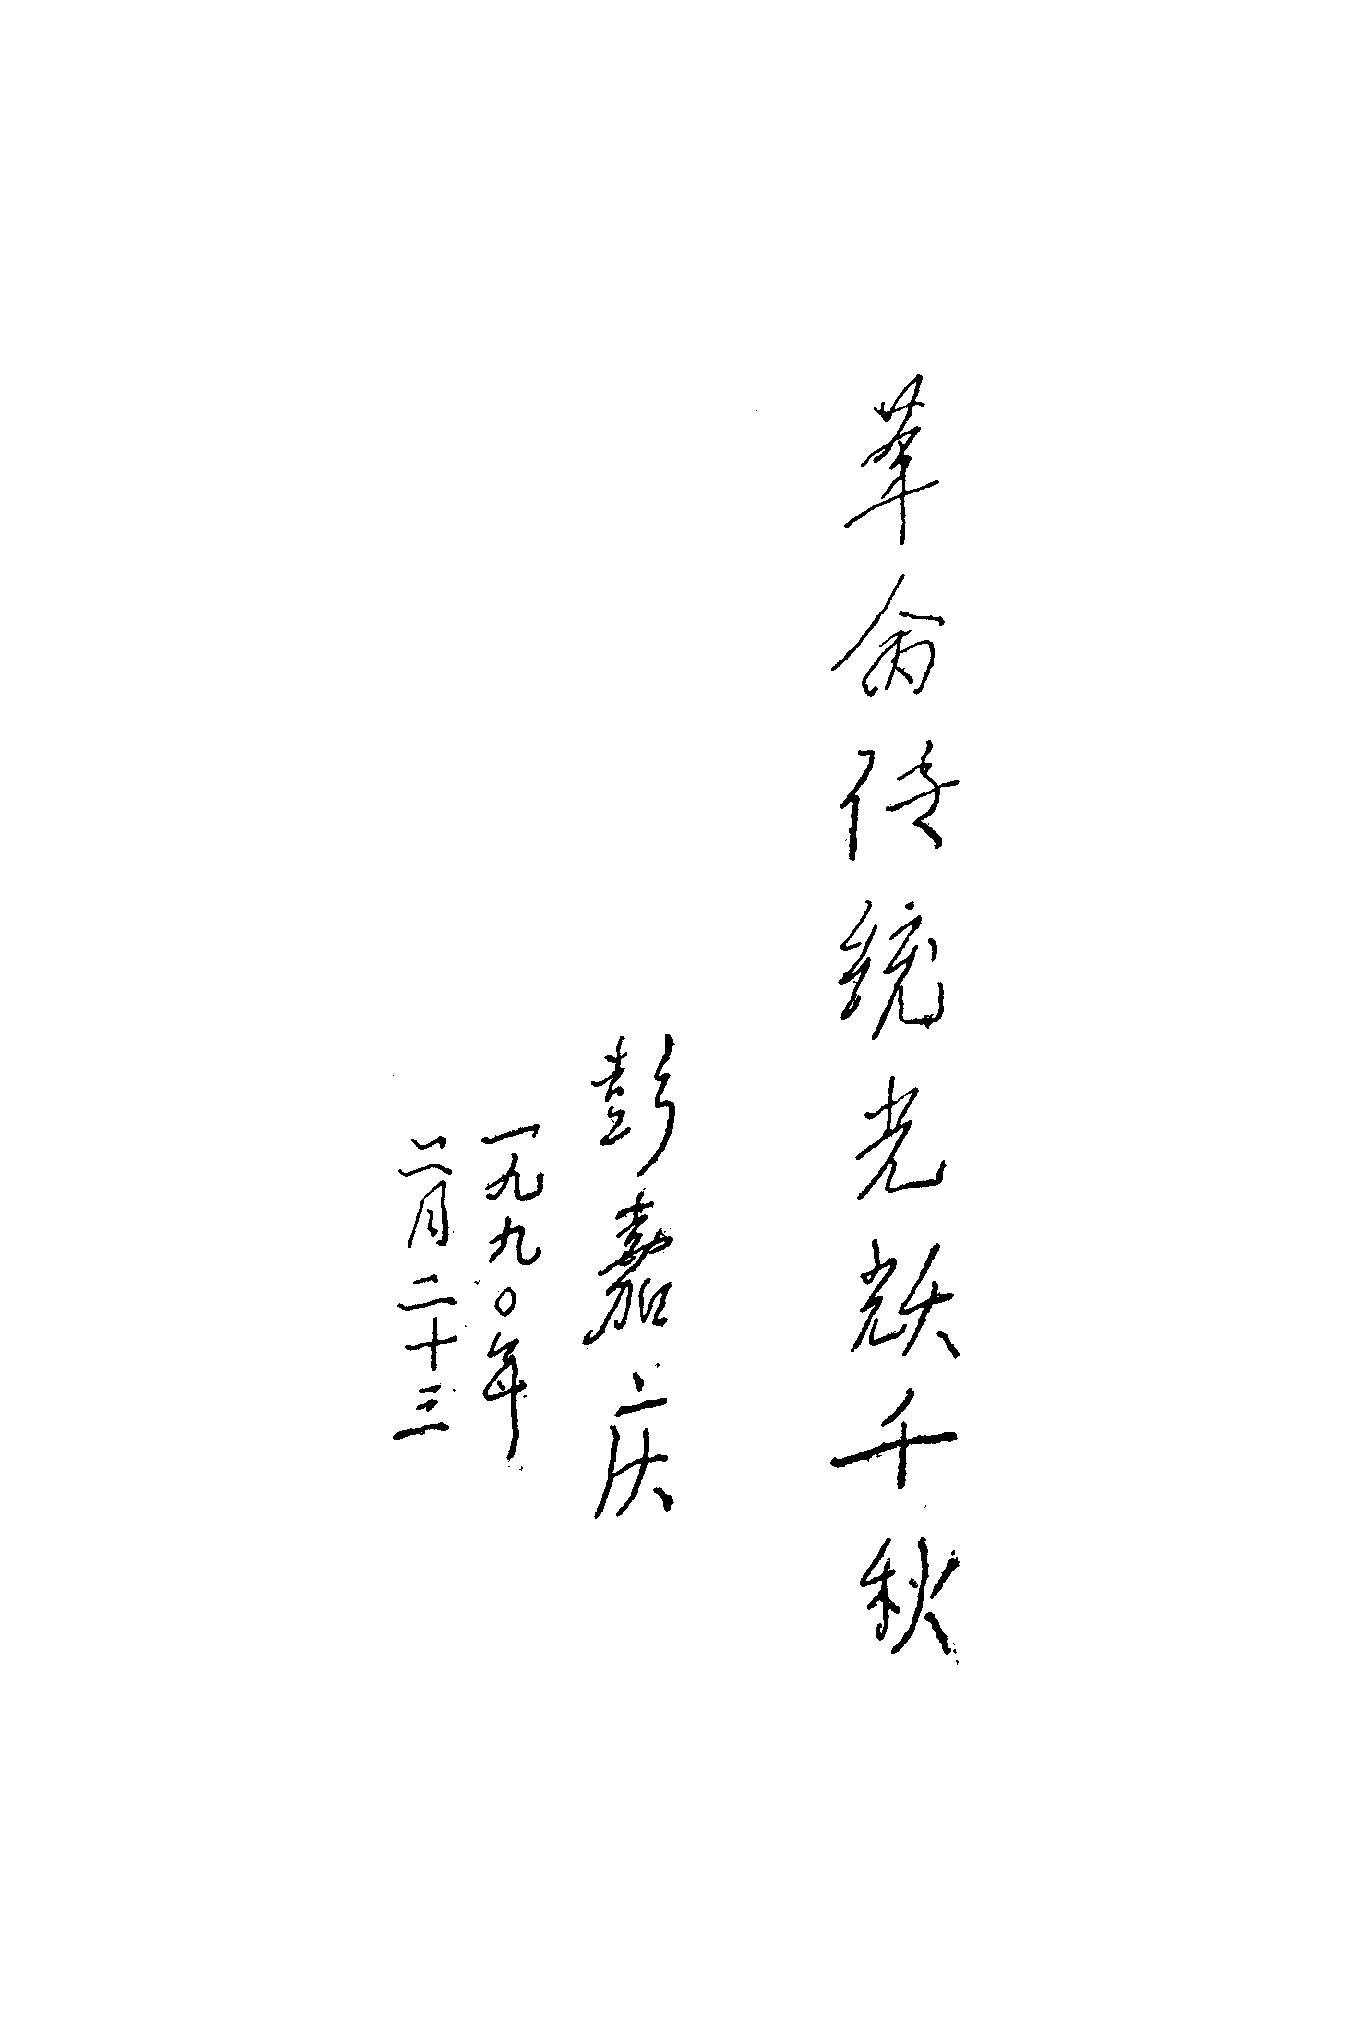 革命传统光耀千秋
彭嘉庆
一九九〇年
二月二十三